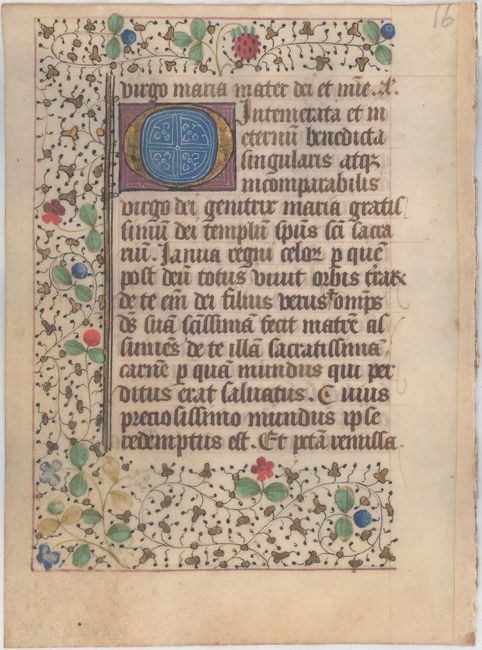 16
virgo maria mater dei et mīe. &c.
O Intemerata et in
eternū benedicta
singularis atqꝫ
incomparabilis
virgo dei genitrix maria gratis
simū dei templū spūs sci sacra
riū. Ianua regni celoꝝ p quē
post deū totus viuit orbis trāꝝ
de te em̄ dei filius verus et omp̄s
ds suā scissimā fecit matrē as
sumēs de te illā sacratissimā
carnē p quā mundus qui per
ditus erat saluatus. Cuius
preciosissimo mundus ipse
redemptus est. Et pctā remissa